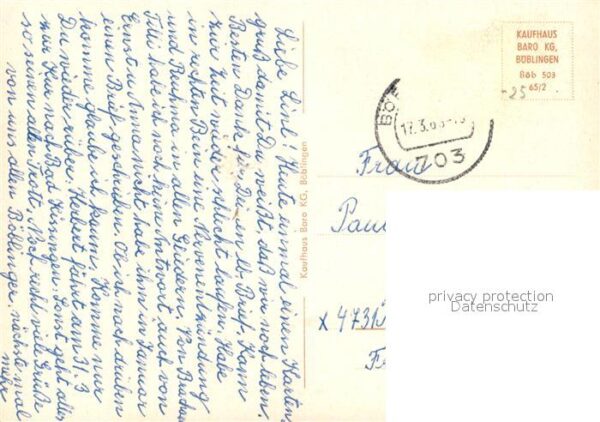 Liebe Linl! Heute einmal einen Karten-
gruß damit Du weißt, daß wir noch leben.
Besten Dank für Deinen lb. Brief. Kann
zur Zeit wieder schlecht laufen. Habe
im rechten Bein eine Venenentzündung
und Rheuma in allen Gliedern. Von
Tilli habe ich noch kein Antwort auch von
Ernst u. Anna nicht hab ihm im Januar
einen Brief geschrieben. Ob ich nach drüben
komme glaube ich kaum. Komme nur
Du wieder rüber. Herbert fährt am 31.3
zur Kur nach Bad Kissingen. Sonst geht alles
so seinen alten Trott. Noch recht viele Grüße
von uns allen Böblinger, nächste mal
mehr
Kaufhaus Baro KG, Böblingen
KAUFHAUS
BARO KG,
BÖBLINGEN
Böb 503
65/2
-25
17.3.6
703
Frau
Pau
x 4731
privacy protection
Datenschutz